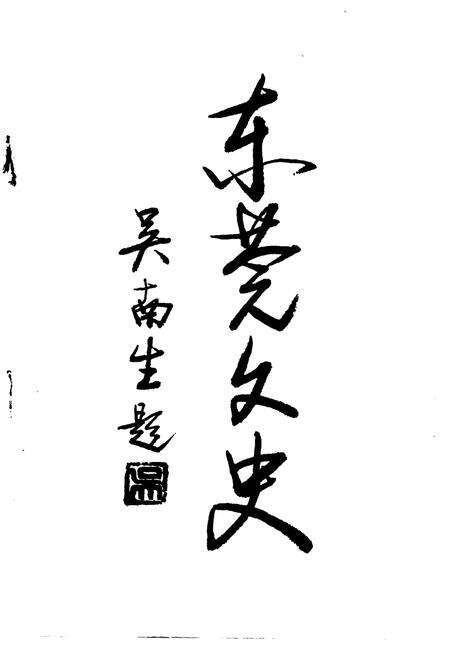 东莞文史
吴南生题